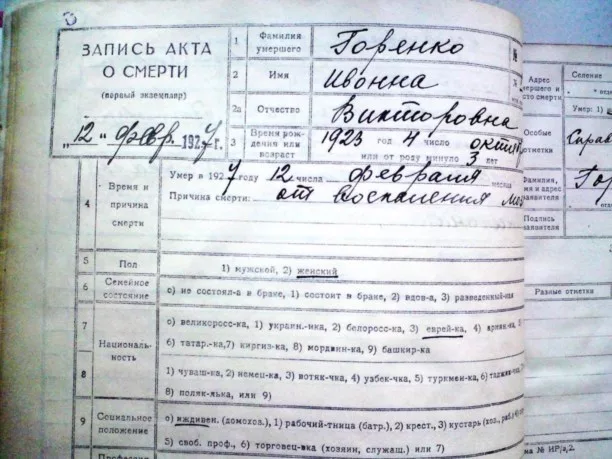 ЗАПИСЬ АКТА
О СМЕРТИ
(первый экземпляр)
"12" февр. 1927 г.
1 Фамилия умершего Горенко
2 Имя Ивонна
2а Отчество Викторовна
3 Время рождения или возраст 1923 год 4 число октяб
или от роду минуло 3 лет
4 Время и причина смерти
Умер в 1927 году 12 числа февраля месяца
Причина смерти: от воспаления
5 Пол 1) мужской, 2) женский
6 Семейное состояние о) не состоял-а в браке, 1) состоит в браке, 2) вдов-а, 3) разведенный-ная
7 Националь-ность
о) великоросс-ка, 1) украин.-нка, 2) белоросс-ка, 3) еврей-ка, 4) армян.-ка, 5
6) татар.-ка, 7) киргиз-ка, 8) мордвин-ка, 9) башкир-ка
8 1) чуваш-ка, 2) немец-ка, 3) вотяк-чка, 4) узбек-чка, 5) туркмен-ка, 6)
8) поляк-лька, или 9)
9 Социальное положение
о) иждивен. (домохоз.), 1) рабочий-тница (батр.), 2) крест., 3) кустарь
5) своб. проф., 6) торговец-вка (хозяин, служащ.) или 7)
Професси
№
Адрес умершего и место смерти
Селение
Умер: 1)
Особые отметки
Справ
Фамилия, имя и адрес заявителя
Го
Подпись заявителя
Разные отметки
ма № НР/а,2.